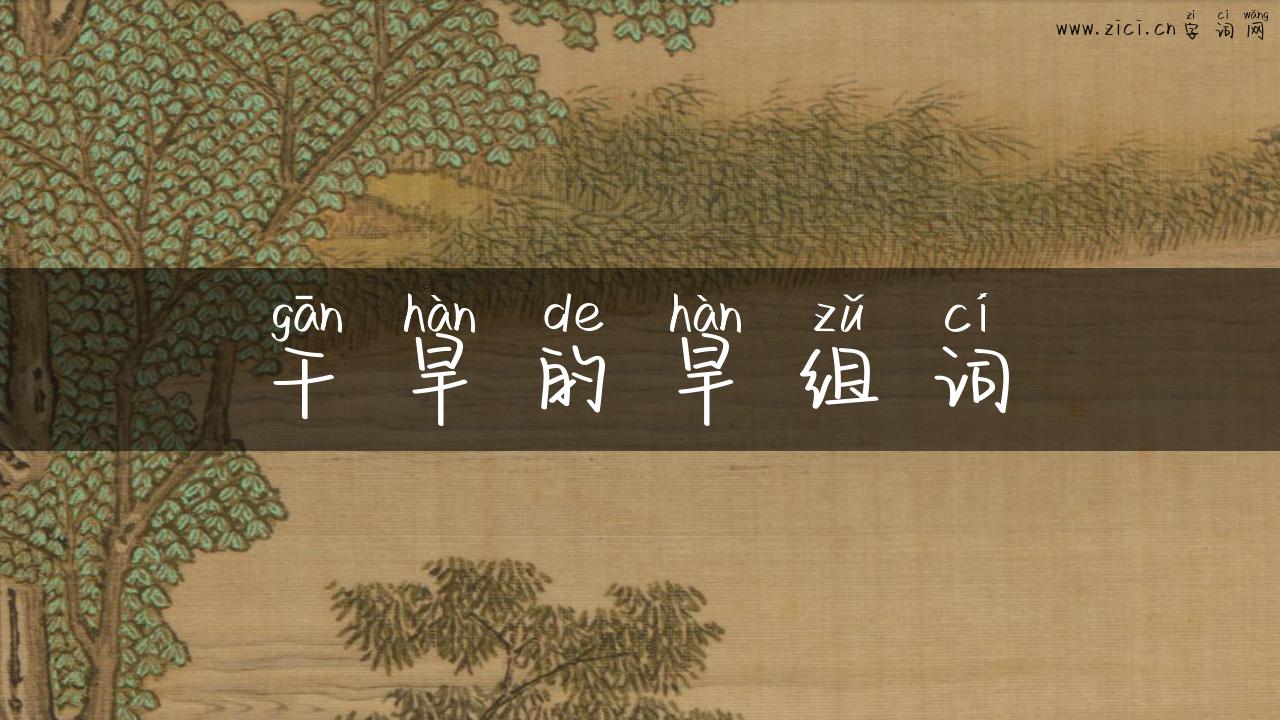 zì cí wǎng
www.zici.cn字词网
gān hàn de hàn zǔ cí
干旱的旱组词